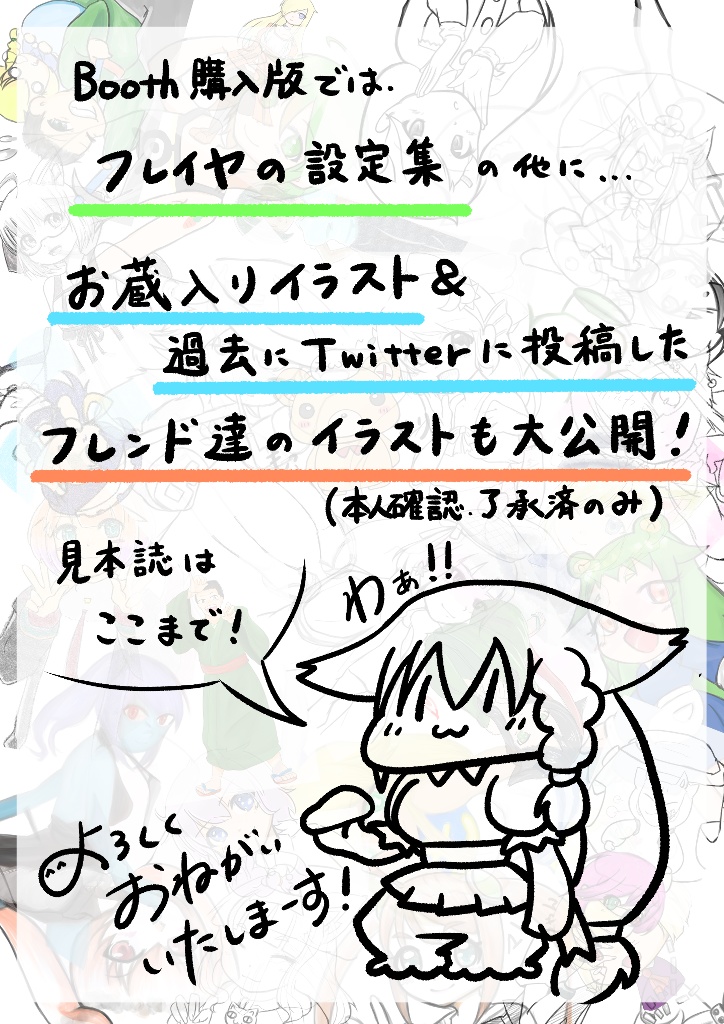 Booth購入版では.
フレイヤの設定集の他に...
お蔵入りイラスト&
過去にTwitterに投稿した
フレンド達のイラストも大公開!
(本人確認.了承済のみ)
見本誌は
ここまで!
わぁ!!
よろしく
おねがい
いたしまーす!